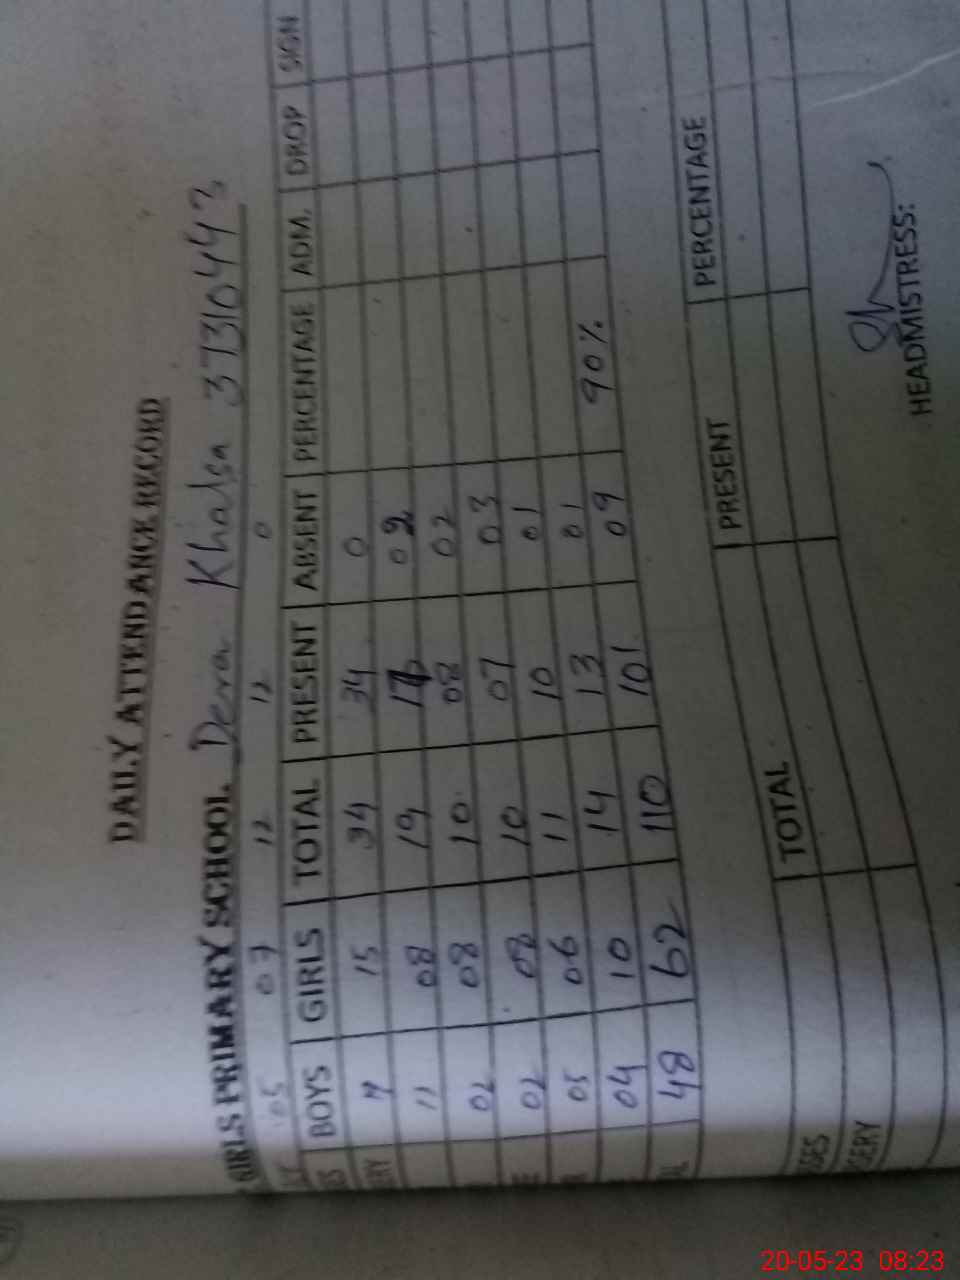 DAILY ATTENDANCE RECORD
GIRLS PRIMARY SCHOOL Dera Khalsa 37310443
05 07 12 12 0
BOYS GIRLS TOTAL PRESENT ABSENT PERCENTAGE ADM. DROP SIGN
15 34 34 0
11 08 19 17 02
02 08 10 08 02
02 08 10 07 03
05 06 11 10 01
04 10 14 13 01
48 62 110 101 09 90%
TOTAL PRESENT PERCENTAGE
HEADMISTRESS:
20-05-23 08:23